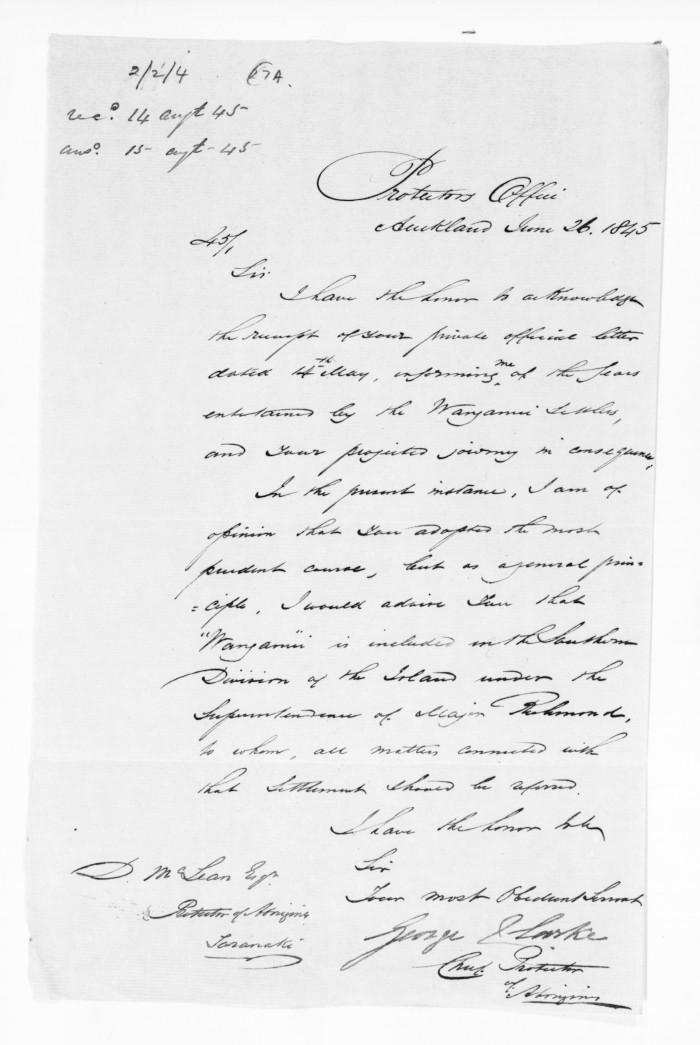 2/2/4 67A.
recd. 14 augt 45
ansd. 15 augt - 45
Protectors Office
Auckland June 26. 1845
45/1
Sir
I have the honor to acknowledge
the receipt of your private official letter
dated 14th May, informing me of the fears
entertained by the Wanganui Settlers,
and your projected journey in consequence,
In the present instance, I am of
opinion that you adopted the most
prudent course, but as a general prin=
=ciple, I would advise you that
"Wanganui" is included in the Southern
Division of the Island under the
Superintendence of Major Richmond,
to whom, all matters connected with
that settlement should be referred.
I have the honor to be
Sir
Your most Obedient Servant
George Clarke
Chief Protector
of Aborigines
D. McLean Esqr
Protector of Aborigines
Taranaki